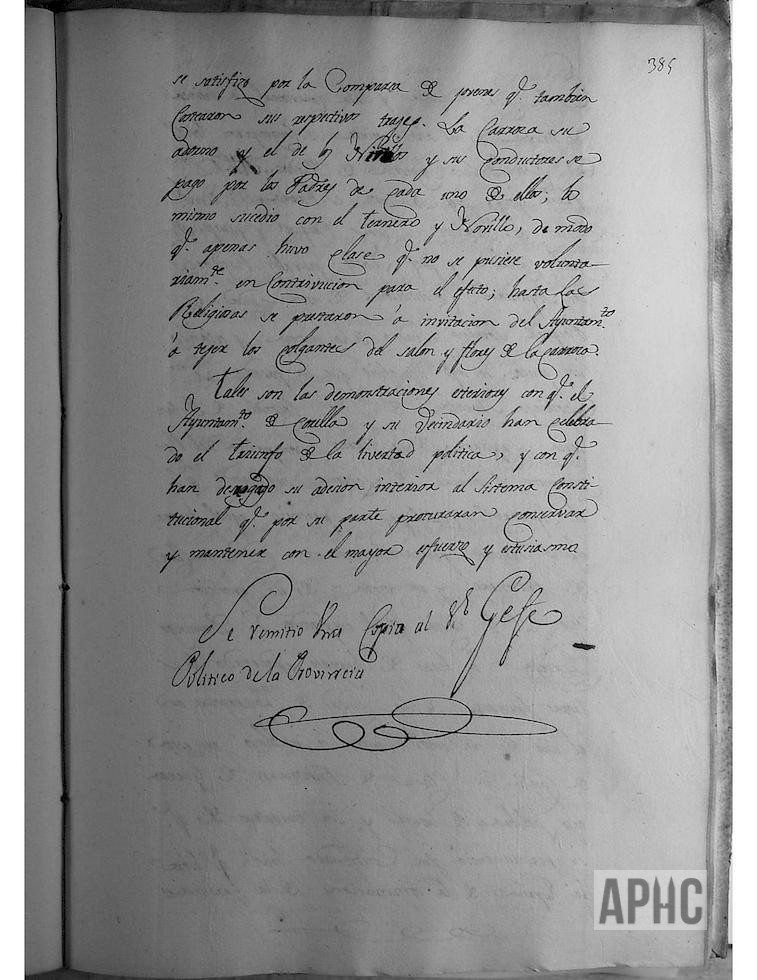 385
se satisfizo por la Comparsa de jovenes q.e tambien
Costearon sus respectivos trages. La Carroza su
adorno y el de los Novillos y sus Conductores se
pago por los Padres de Cada uno de ellos; lo
mismo sucedio con el ternero y Novillo, de modo
q.e apenas huvo Clase q.e no se pusiese volunta-
riam.te en Contrivucion para el efecto; hasta las
Religiosas se prestaron á invitacion del Ayuntam.to
á tejer los Colgantes del salon y flores de la Carroza.
Tales son las demostraciones exteriores con q.e el
Ayuntam.to de Corella y su Vecindario han Celebra-
do el triunfo de la livertad politica, y con q.e
han su adesion interior al Sistema Consti-
tucional q.e por su parte procuraran Conservar
y mantener con el mayor esfuerzo y entusiasmo
Se remitio Una Copia al S.r Gefe
Politico de la Provincia
APHC